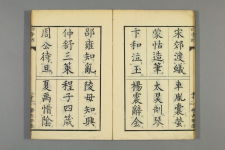 宋郊渡蟻 車胤囊螢
蒙恬造筆 太昊制琴
卞和泣玉 楊震辭金
邵雍知亂 陵母知興
仲舒三策 程子四箴
周公待旦 夏禹惜陰